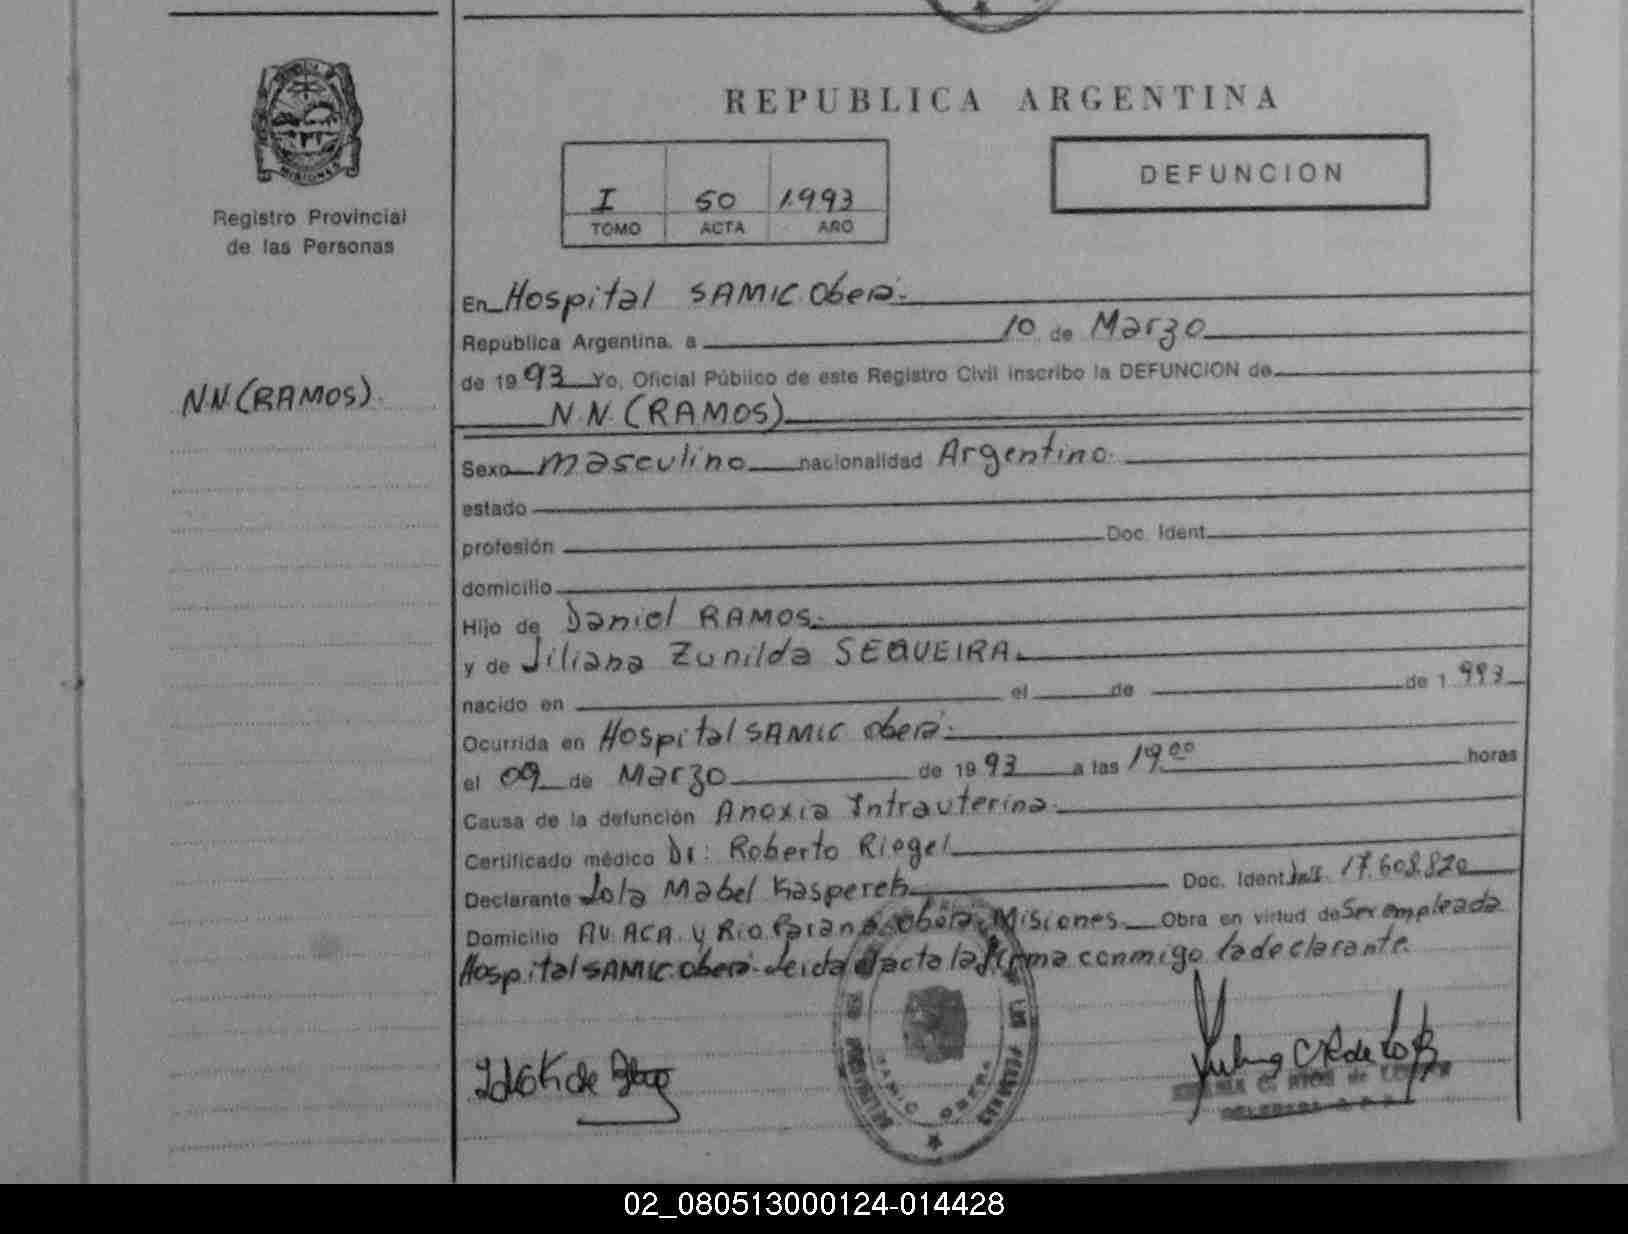 REPUBLICA ARGENTINA
MISIONES
Registro Provincial
de las Personas
I 50 1.993
TOMO ACTA AÑO
DEFUNCION
N.N. (RAMOS).
En Hospital SAMIC Oberá.
República Argentina, a 10 de Marzo
de 19 93 Yo, Oficial Público de este Registro Civil inscribo la DEFUNCION de
N.N. (RAMOS)
Sexo masculino nacionalidad Argentino.
estado
profesión Doc. Ident.
domicilio
Hijo de Daniel RAMOS.
y de Liliana Zunilda SEQUEIRA.
nacido en el de de 1.993
Ocurrida en Hospital SAMIC Oberá.
el 09 de Marzo de 19 93 a las 19.00 horas
Causa de la defunción Anoxia Intrauterina.
Certificado médico Dr: Roberto Riegel
Declarante Lola Mabel Kaspereh Doc. Ident. 17.608.820
Domicilio AV. ACA. y Rio Parana. Oberá. Misiones. Obra en virtud de Ser empleada
Hospital SAMIC Oberá. Leida el acta la firma conmigo la declarante.
SAMIC OBERA
C. RIOS de
02_080513000124-014428